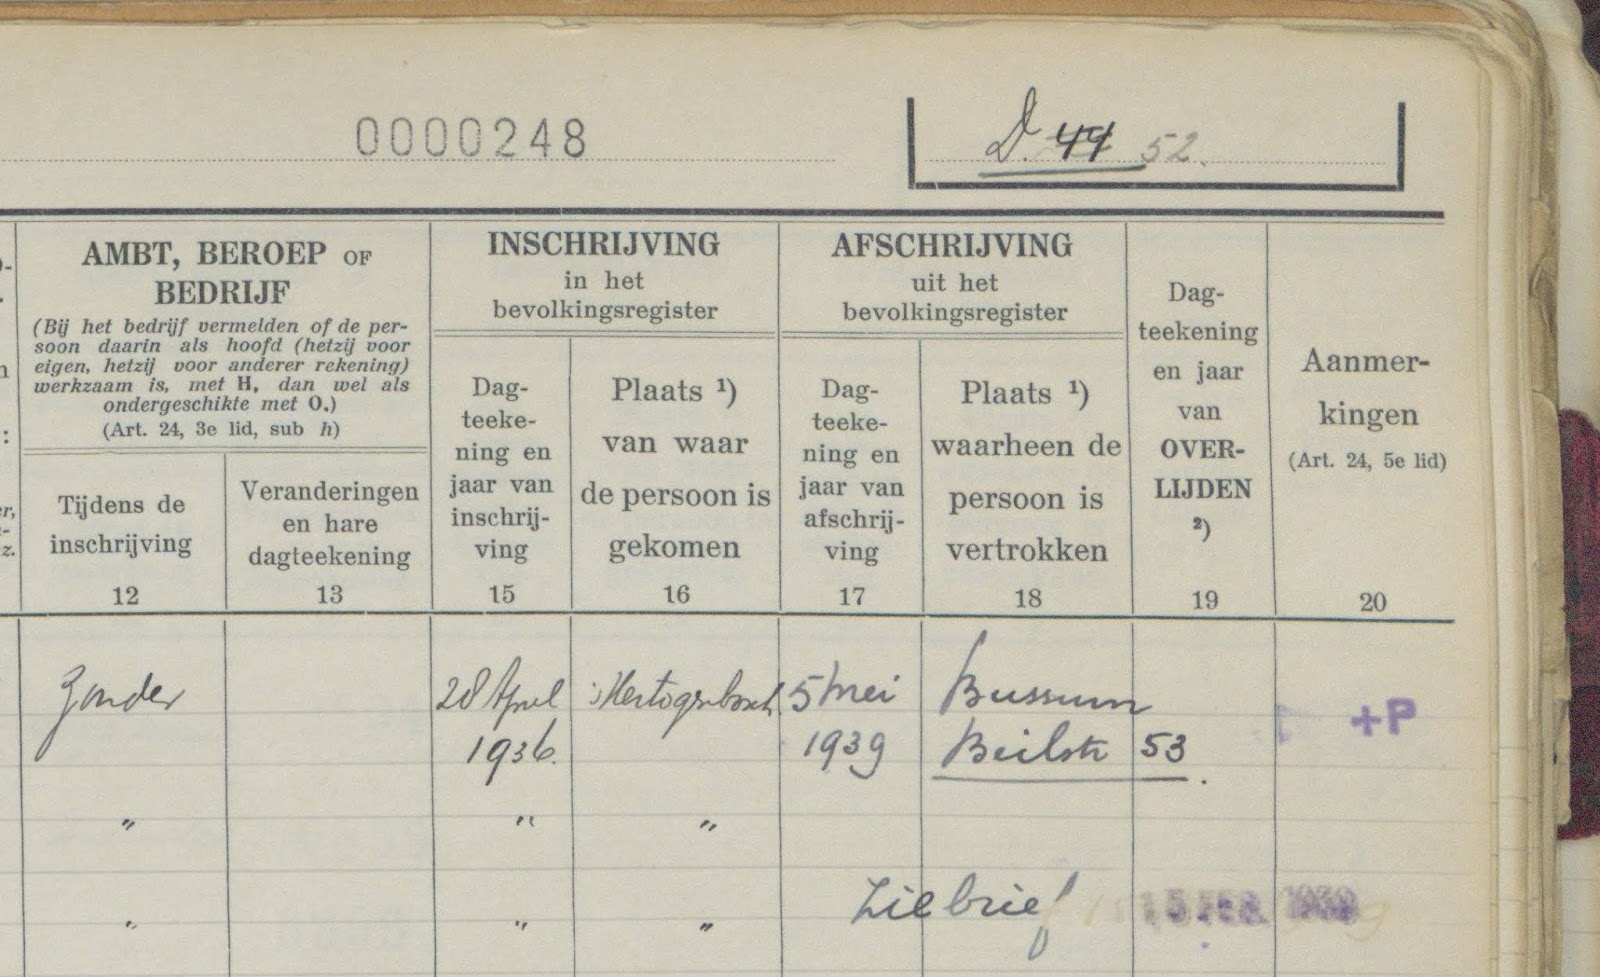 0000248
D. 44 52.
AMBT, BEROEP OF
BEDRIJF
(Bij het bedrijf vermelden of de per-
soon daarin als hoofd (hetzij voor
eigen, hetzij voor anderer rekening)
werkzaam is, met H, dan wel als
ondergeschikte met O.)
(Art. 24, 3e lid, sub h)
Tijdens de
inschrijving
12
Veranderingen
en hare
dagteekening
13
INSCHRIJVING
in het
bevolkingsregister
Dag-
teeke-
ning en
jaar van
inschrij-
ving
15
Plaats ¹)
van waar
de persoon is
gekomen
16
AFSCHRIJVING
uit het
bevolkingsregister
Dag-
teeke-
ning en
jaar van
afschrij-
ving
17
Plaats ¹)
waarheen de
persoon is
vertrokken
18
Dag-
teekening
en jaar
van
OVER-
LIJDEN
²)
19
Aanmer-
kingen
(Art. 24, 5e lid)
20
Zonder
28 April
1936.
'sHertogenbosch
5 Mei
1939
Bussum
Beilstr 53.
+P
" " "
" " "
Zie brief 15 FEB. 1939